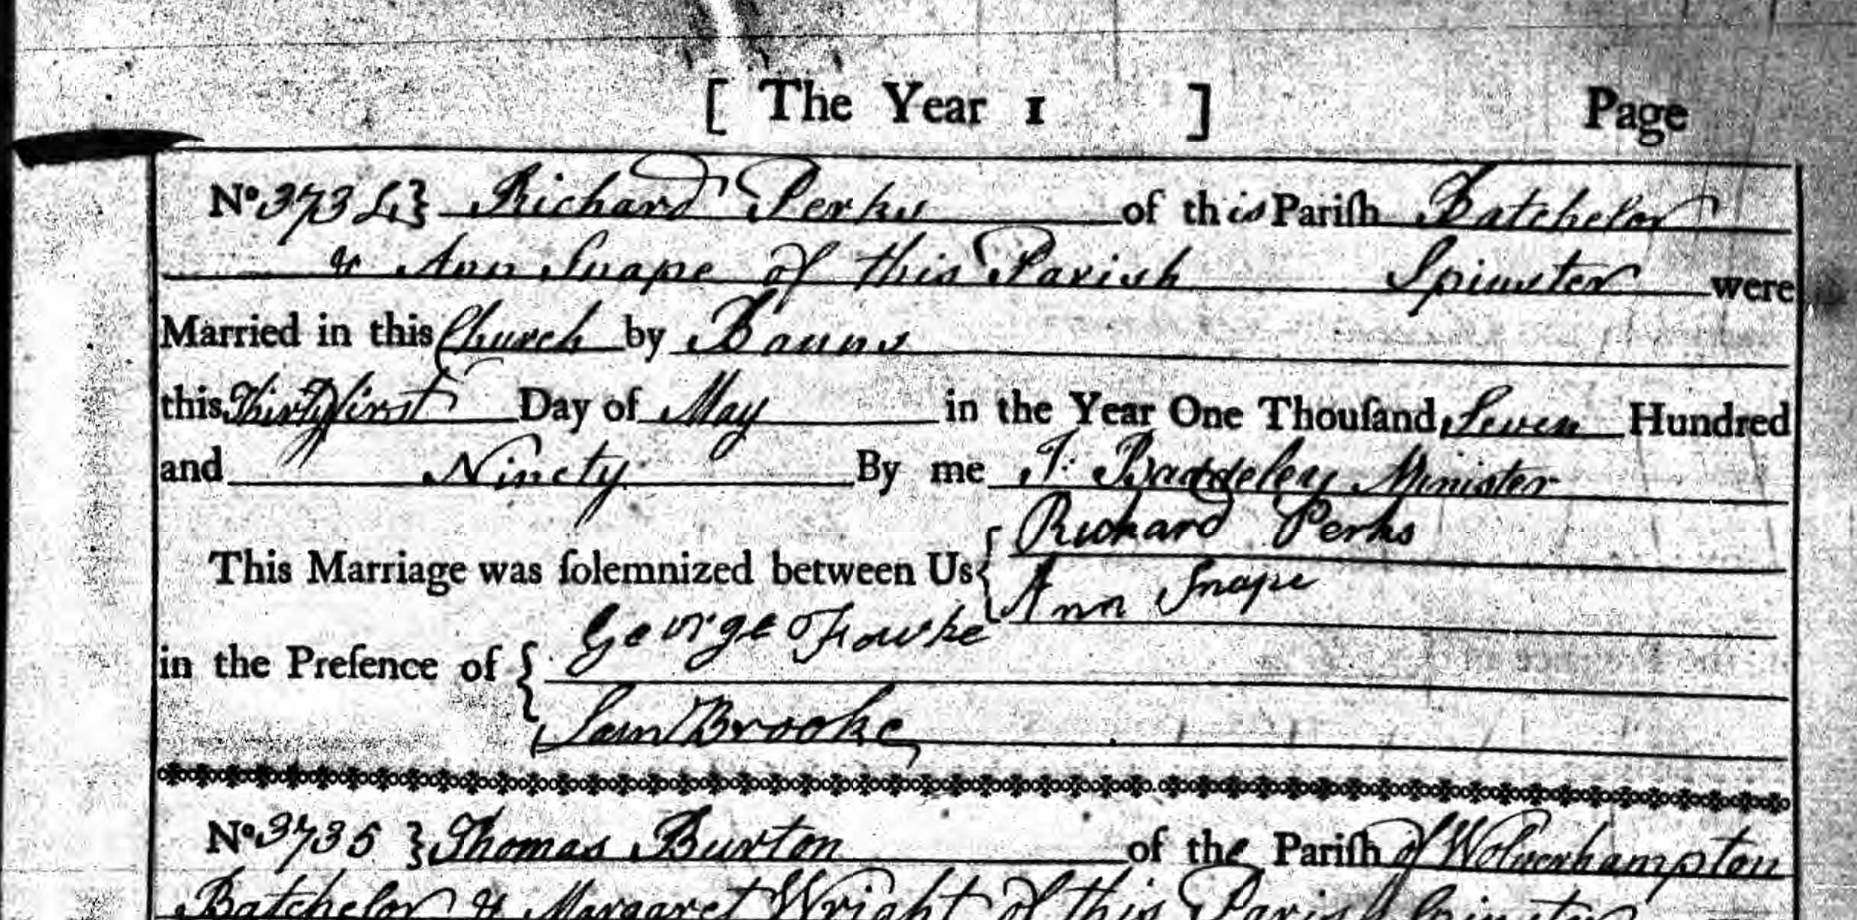 [ The Year 1 ] Page
No. 3734} Richard Perks of this Pariſh Batchelor
& Ann Snape of this Parish Spinster were
Married in this Church by Banns
this Thirty first Day of May in the Year One Thouſand Seven Hundred
and Ninety By me J: Baddeley Minister
Richard Perks
This Marriage was ſolemnized between Us {
Ann Snape
George Fowke
in the Preſence of {
Sam Brooke
No. 3735 } Thomas Burton of the Pariſh of Wolverhampton
Batchelor & Margaret Wright of this Parish Spinster